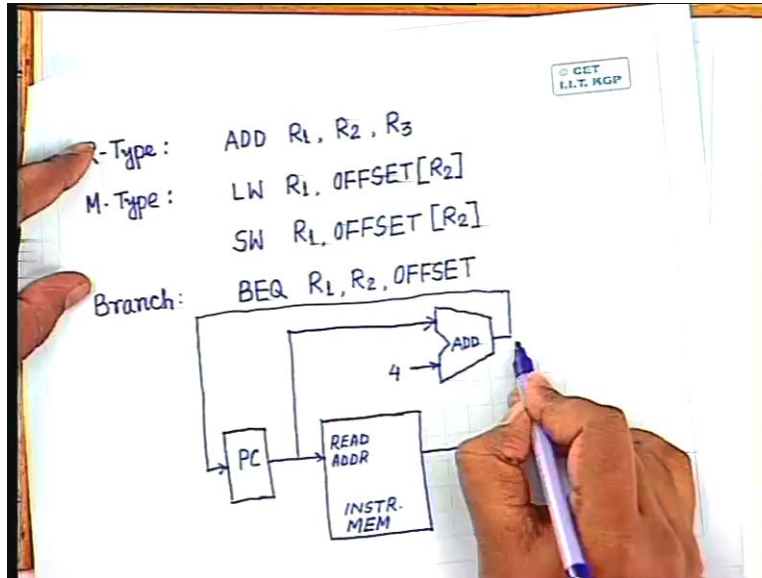 © CET
I.I.T. KGP
R-Type: ADD R1, R2, R3
M-Type: LW R1, OFFSET[R2]
SW R1, OFFSET [R2]
Branch: BEQ R1, R2, OFFSET
ADD
4
PC
READ
ADDR
INSTR.
MEM